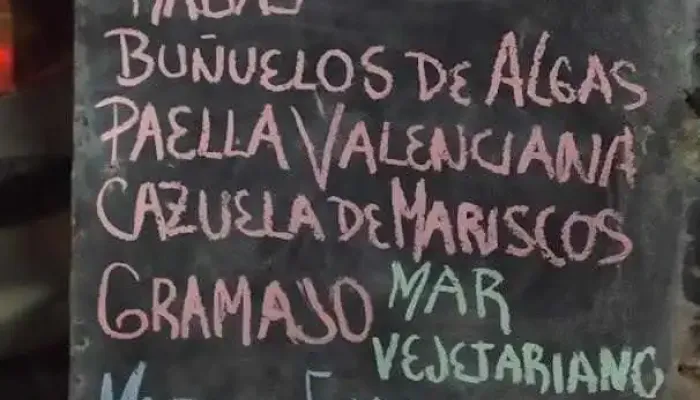 RABAS
BUÑUELOS DE ALGAS
PAELLA VALENCIANA
CAZUELA DE MARISCOS
GRAMAJO MAR
VEJETARIANO